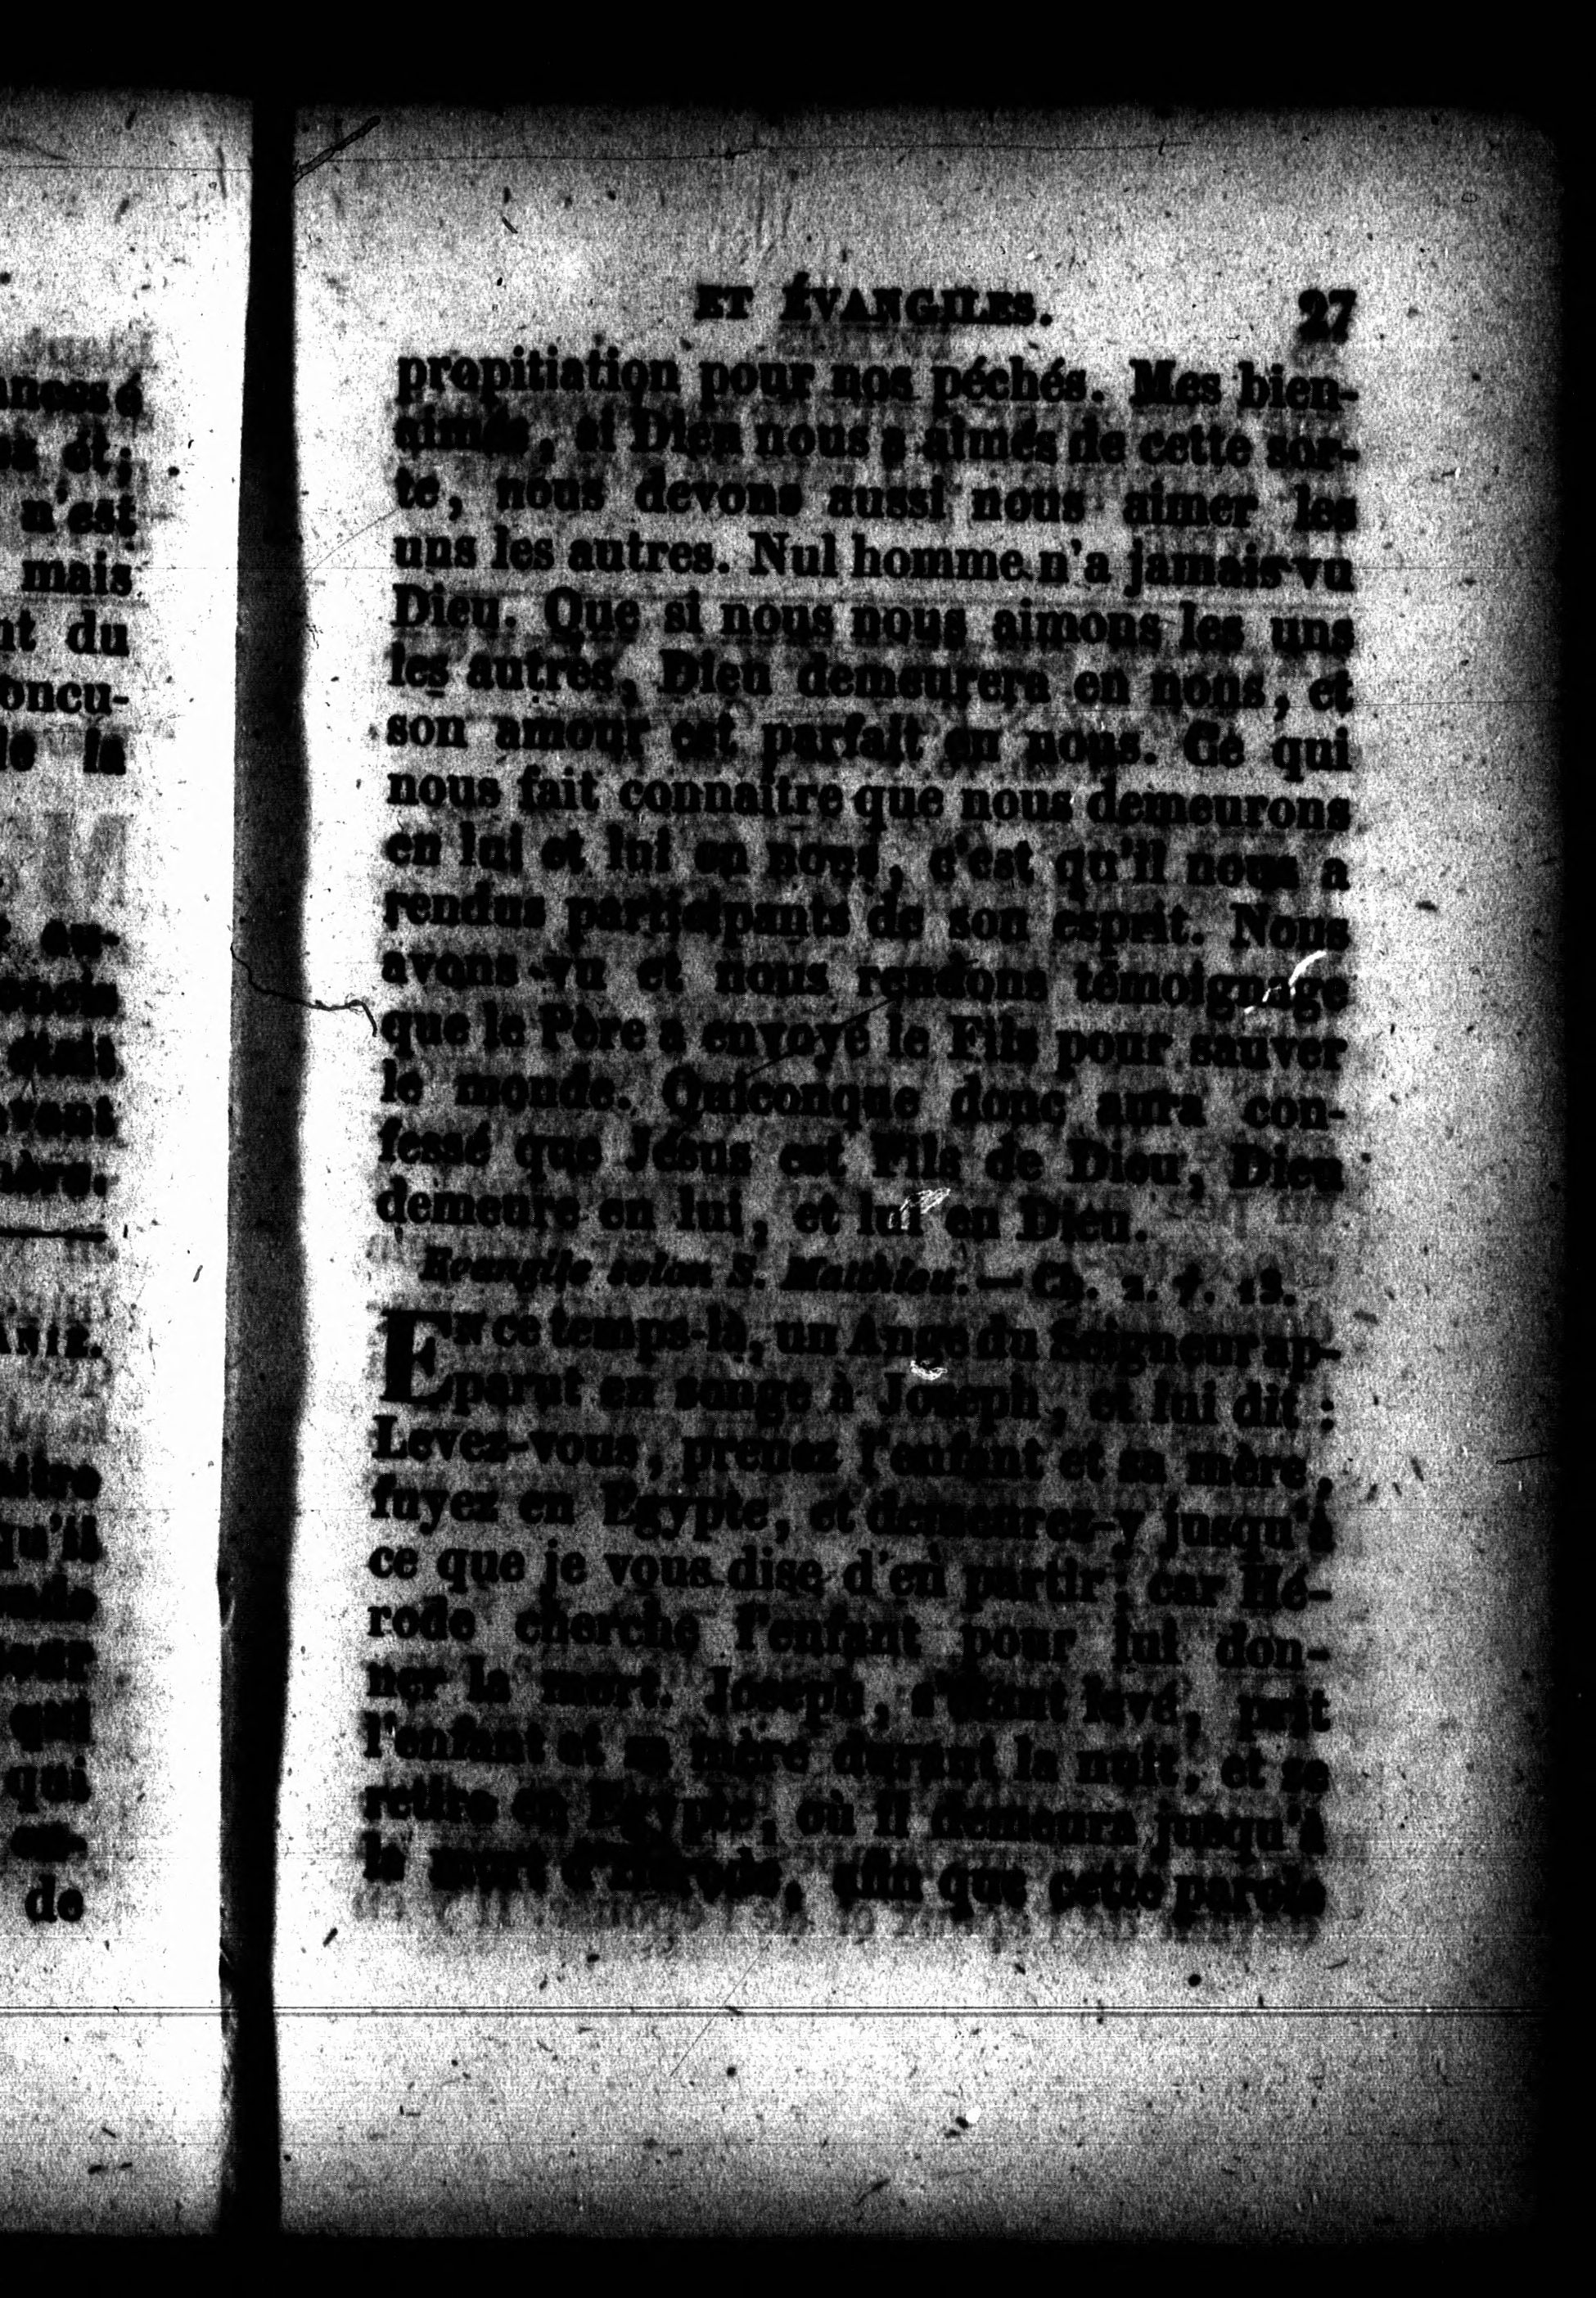 ancessé
ez ét;
n'est
mais
nt du
oncu-
le la
était
qu'il
qui
qui
de
ET ÉVANGILES. 27
propitiation pour nos péchés. Mes bien-
aimés, si Dieu nous a aimés de cette sor-
te, nous devons aussi nous aimer les
uns les autres. Nul homme n'a jamais vu
Dieu. Que si nous nous aimons les uns
les autres, Dieu demeurera en nous, et
son amour est parfait en nous. Ce qui
nous fait connaître que nous demeurons
en lui et lui en nous, c'est qu'il nous a
rendus participants de son esprit. Nous
avons vu et nous rendons témoignage
que le Père a envoyé le Fils pour sauver
le monde. Quiconque donc aura con-
fessé que Jésus est Fils de Dieu, Dieu
demeure en lui, et lui en Dieu.
Evangile selon S. Matthieu. — Ch. 2. ℣. 13.
EN ce temps-là, un Ange du Seigneur ap-
parut en songe à Joseph, et lui dit :
Levez-vous, prenez l'enfant et sa mère,
fuyez en Egypte, et demeurez-y jusqu'à
ce que je vous dise d'en partir; car Hé-
rode cherche l'enfant pour lui don-
ner la mort. Joseph, s'étant levé, prit
l'enfant et sa mère durant la nuit, et se
retira en Egypte, où il demeura jusqu'à
la mort d'Hérode, afin que cette parole